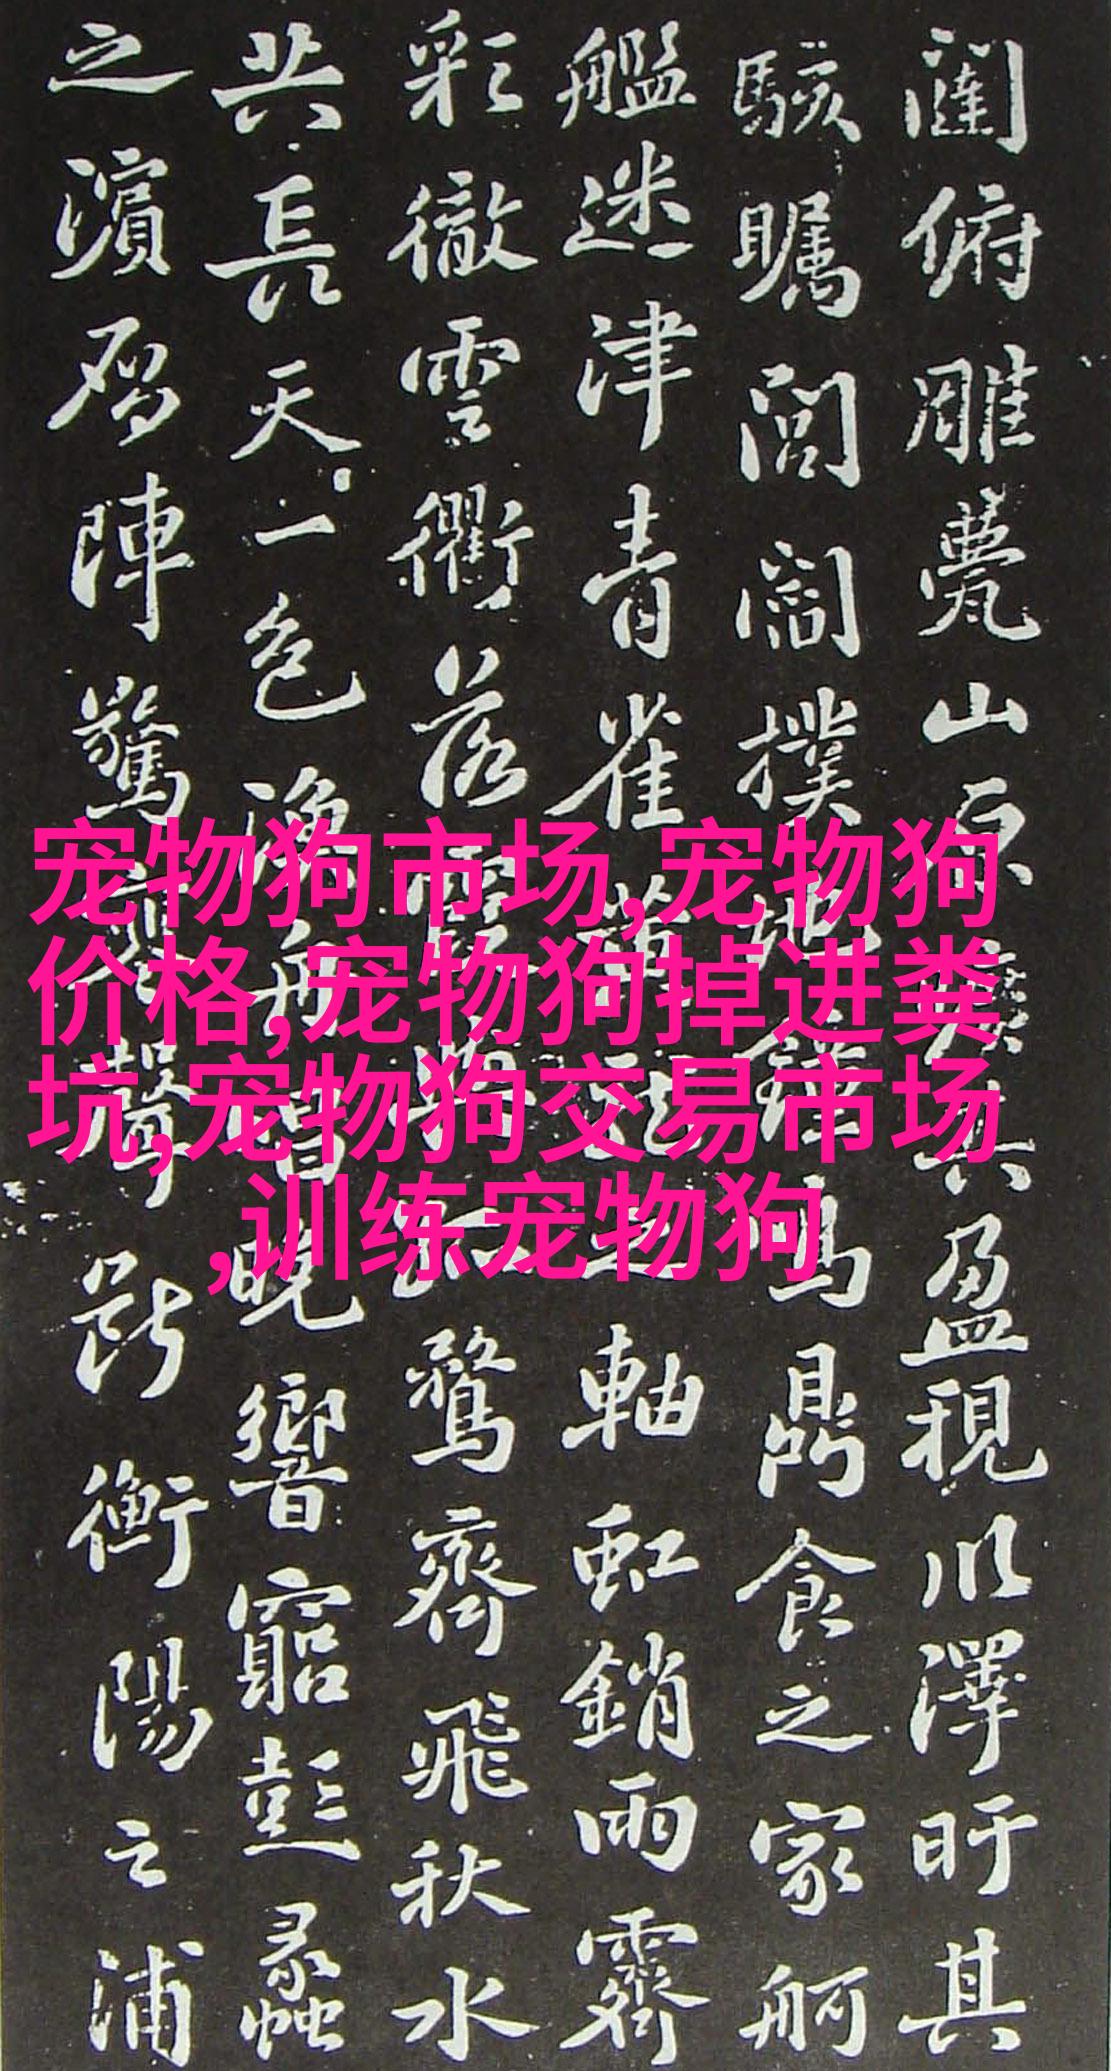 闥俯雕甍山原曠其盈視川澤盱其
駭矚閭閻撲地鐘鳴鼎食之家舸
艦迷津青雀黃龍之軸虹銷雨霽
彩徹雲衢落霞與孤鶩齊飛秋水
共長天一色漁舟唱晚響窮彭蠡
之濱雁陣驚寒聲斷衡陽之浦
宠物狗市场,宠物狗
价格,宠物狗掉进粪
坑,宠物狗交易市场
,训练宠物狗